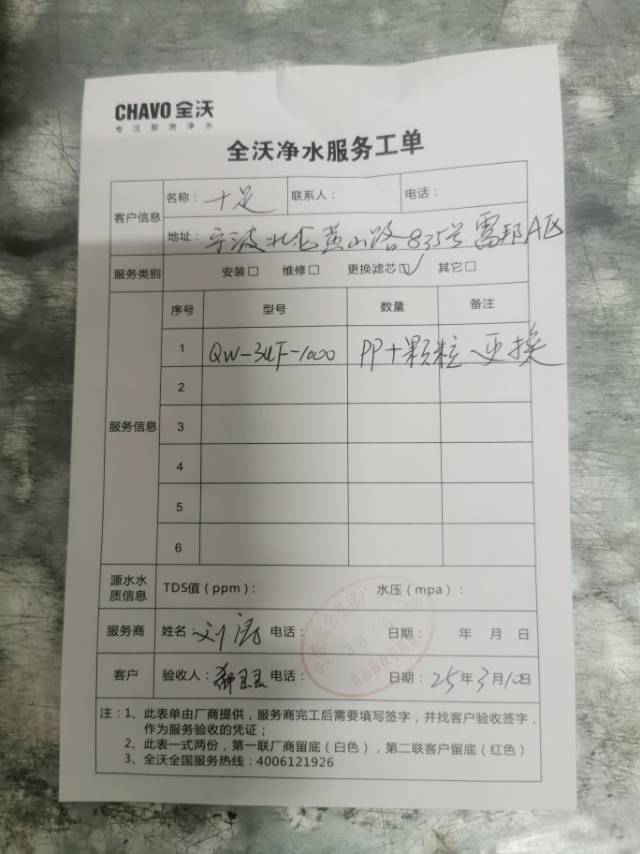 CHAVO 全沃
专注厨房净水
全沃净水服务工单
客户信息
名称： 十足 联系人： 电话：
地址： 宁波北仑黄山路835号雷邦A区
服务类别 安装□ 维修□ 更换滤芯☑ 其它□
服务信息
序号 型号 数量 备注
1 QW-3UF-1000 PP+颗粒 更换
2
3
4
5
6
源水水质信息 TDS值（ppm）： 水压（mpa）：
服务商 姓名： 电话： 日期： 年 月 日
客户 验收人： 电话： 日期：25年3月10日
注：1、此表单由厂商提供，服务商完工后需要填写签字，并找客户验收签字，
作为服务验收的凭证；
2、此表一式两份，第一联厂商留底（白色），第二联客户留底（红色）
3、全沃全国服务热线：4006121926